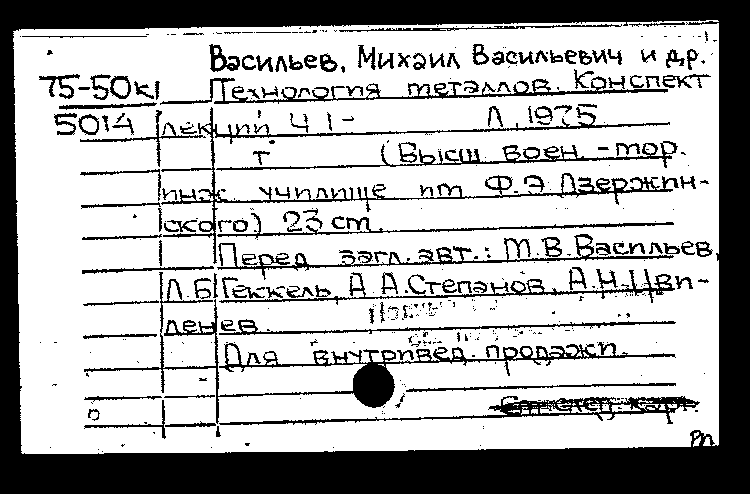 Васильев, Михаил Васильевич и др.
75-50к Технология металлов. Конспект
5014 лекций Ч 1- Л, 1975
т (Высш воен.-мор.
инж училище им Ф.Э.Дзержин-
ского) 23 cm.
Перед загл. авт.: М.В.Васильев,
Л.Б.Геккель, А А.Степанов, А.Н.Цви-
ленев.
Для внутривед. продажи.
Рп